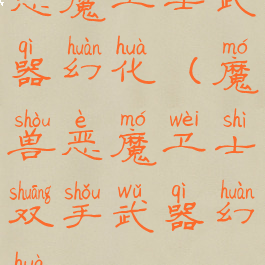 恶魔卫士武
qì huàn huà mó
器幻化（魔
shòu è mó wèi shì
兽恶魔卫士
shuāng shǒu wǔ qì huàn
双手武器幻
huà